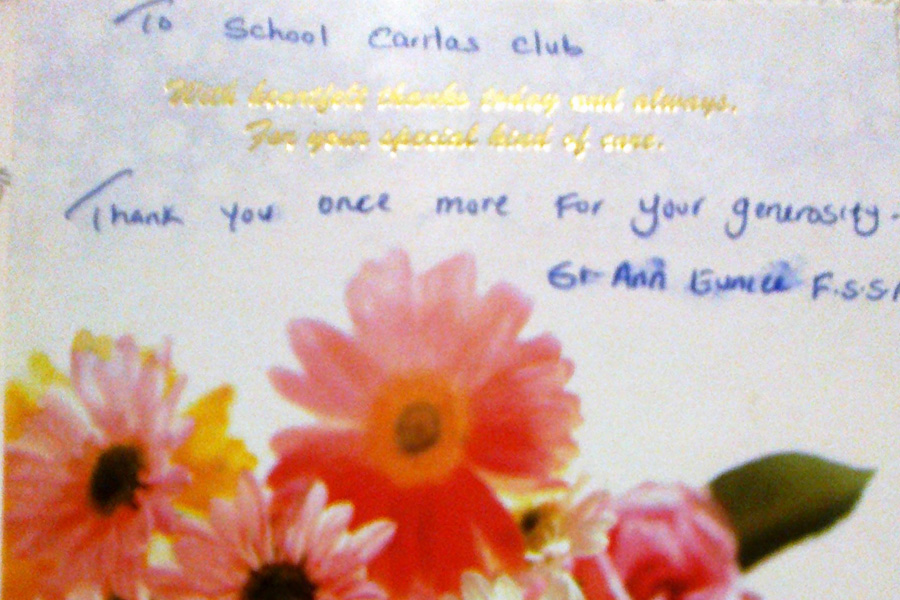 To School Carrtas club
With heartfelt thanks today and always.
For your special kind of care.
Thank you once more For your generosity.
Sr Ann Eunice F.S.S.